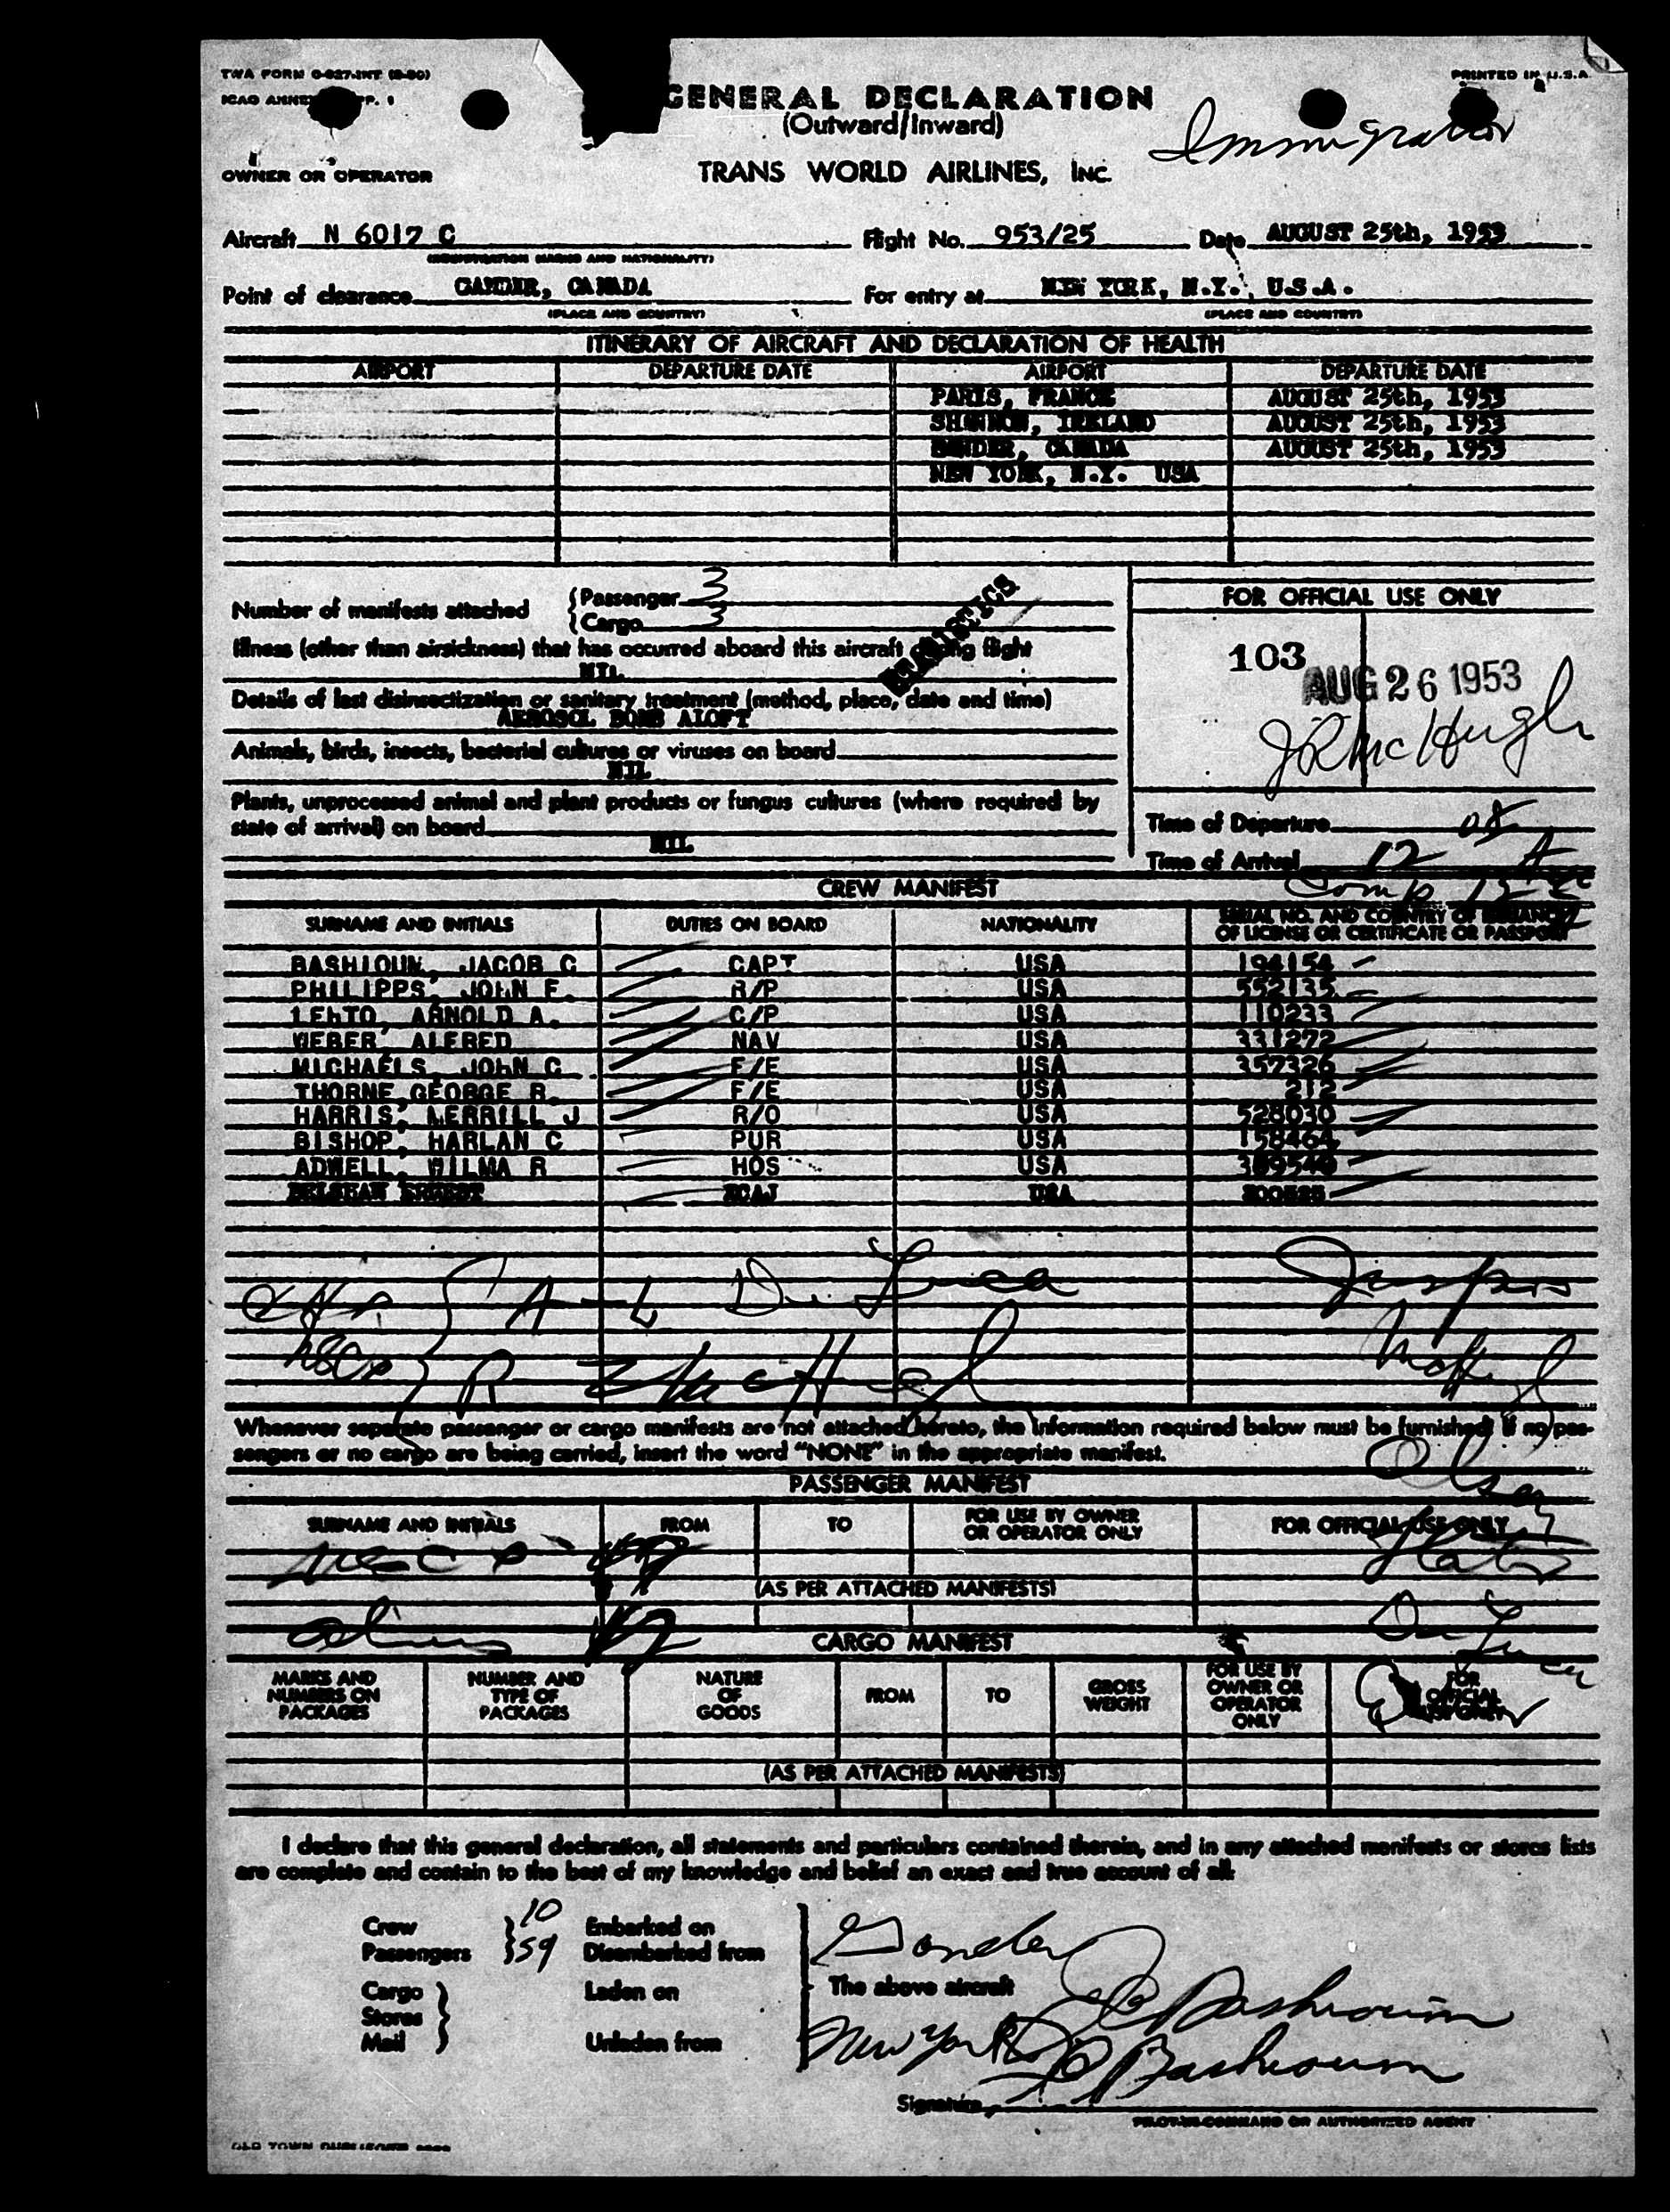 TWA FORM O-827-INT (8-50)
PRINTED IN U.S.A.
ICAO ANNEX PP. 1
GENERAL DECLARATION
(Outward/Inward)
Immigration
OWNER OR OPERATOR
TRANS WORLD AIRLINES, INC.
Aircraft N 6017 C Flight No. 953/25 Date AUGUST 25th, 1953
(REGISTRATION MARKS AND NATIONALITY)
Point of clearance GANDER, CANADA For entry at NEW YORK, N.Y., U.S.A.
(PLACE AND COUNTRY) (PLACE AND COUNTRY)
ITINERARY OF AIRCRAFT AND DECLARATION OF HEALTH
AIRPORT DEPARTURE DATE AIRPORT DEPARTURE DATE
PARIS, FRANCE AUGUST 25th, 1953
SHANNON, IRELAND AUGUST 25th, 1953
GANDER, CANADA AUGUST 25th, 1953
NEW YORK, N.Y. USA
Number of manifests attached
Passenger 3
Cargo 3
STATISTICS
Illness (other than airsickness) that has occurred aboard this aircraft during flight
NIL
Details of last disinsectization or sanitary treatment (method, place, date and time)
AEROSOL BOMB ALOFT
Animals, birds, insects, bacterial cultures or viruses on board
NIL
Plants, unprocessed animal and plant products or fungus cultures (where required by
state of arrival) on board
NIL
FOR OFFICIAL USE ONLY
103
AUG 26 1953
J R McHugh
Time of Departure
Time of Arrival 12 05 A
Comp 12
CREW MANIFEST
SURNAME AND INITIALS DUTIES ON BOARD NATIONALITY SERIAL NO. AND COUNTRY OF ISSUANCE
OF LICENSE OR CERTIFICATE OR PASSPORT
BASHIOUM, JACOB C CAPT USA 194154
PHILIPPS, JOHN F. R/P USA 552135
LEHTO, ARNOLD A. C/P USA 110233
WEBER, ALFRED NAV USA 331272
MICHAELS, JOHN C F/E USA 357326
THORNE, GEORGE R. F/E USA 212
HARRIS, MERRILL J R/O USA 528030
BISHOP, HARLAN C PUR USA 158464
ADWELL, WILMA R HOS USA
ERNEST USA
A L De Luca
R McHugh
Whenever separate passenger or cargo manifests are not attached hereto, the information required below must be furnished. If no pas-
sengers or no cargo are being carried, insert the word "NONE" in the appropriate manifest.
Olsen
PASSENGER MANIFEST
SURNAME AND INITIALS FROM TO FOR USE BY OWNER
OR OPERATOR ONLY
FOR OFFICIAL USE ONLY
(AS PER ATTACHED MANIFESTS)
De Luca
CARGO MANIFEST
MARKS AND
NUMBERS ON
PACKAGES
NUMBER AND
TYPE OF
PACKAGES
NATURE
OF
GOODS
FROM
TO
GROSS
WEIGHT
FOR USE BY
OWNER OR
OPERATOR
ONLY
FOR
OFFICIAL
USE ONLY
(AS PER ATTACHED MANIFESTS)
I declare that this general declaration, all statements and particulars contained therein, and in any attached manifests or stores lists
are complete and contain to the best of my knowledge and belief an exact and true account of all:
Crew 10 Embarked on
Passengers 59 Disembarked from
Gander
Cargo Laden on The above aircraft
Stores
Mail Unladen from
New York
J C Bashioum
J C Bashioum
Signature
PILOT-IN-COMMAND OR AUTHORIZED AGENT